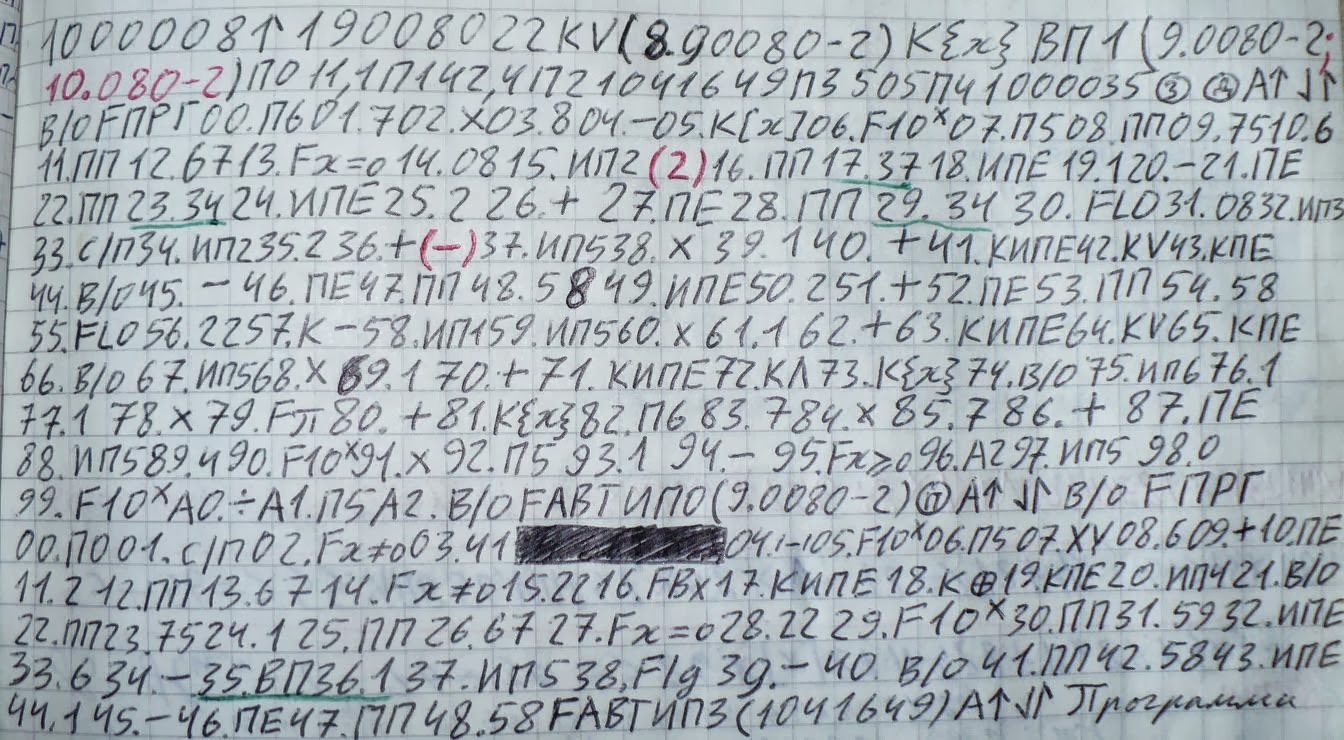 10000081↑19008022KV(8.90080-2)K{x}ВП1(9.0080-2;
10.080-2)П011,1П142,4П21041649П3505П41000035③ⒹА↑↓↑
В/0FПРГ00.П601.702.X03.804.-05.K[x]06.F10ˣ07.П508.ПП09.7510.6
11.ПП12.6713.Fx=014.0815.ИП2(2)16.ПП17.3718.ИПЕ19.120.-21.ПЕ
22.ПП23.3424.ИПЕ25.226.+27.ПЕ28.ПП29.3430.FL031.0832.ИП3
33.С/П34.ИП235.236.+(-)37.ИП538.×39.140.+41.КИПЕ42.KV43.КПЕ
44.В/045.-46.ПЕ47.ПП48.5849.ИПЕ50.251.+52.ПЕ53.ПП54.58
55.FL056.2257.K-58.ИП159.ИП560.×61.162.+63.КИПЕ64.KV65.КПЕ
66.В/067.ИП568.×69.170.+71.КИПЕ72.КΛ73.K{x}74.В/075.ИП676.1
77.178.×79.Fπ80.+81.K{x}82.П683.784.×85.786.+87.ПЕ
88.ИП589.490.F10ˣ91.×92.П593.194.-95.Fx≥096.А297.ИП598.0
99.F10ˣА0.÷А1.П5А2.В/0FАВТИП0(9.0080-2)ⓃА↑↓↑В/0FПРГ
00.П001.С/П02.Fx≠003.4104.1-105.F10ˣ06.П507.XY08.609.+10.ПЕ
11.212.ПП13.6714.Fx≠015.2216.FBx17.КИПЕ18.К⊕19.КПЕ20.ИП421.В/0
22.ПП23.7524.125.ПП26.6727.Fx=028.2229.F10ˣ30.ПП31.5932.ИПЕ
33.634.-35.ВП36.137.ИП538.Flg39.-40.В/041.ПП42.5843.ИПЕ
44.145.-46.ПЕ47.ПП48.58FАВТИП3(1041649)А↑↓↑Программа